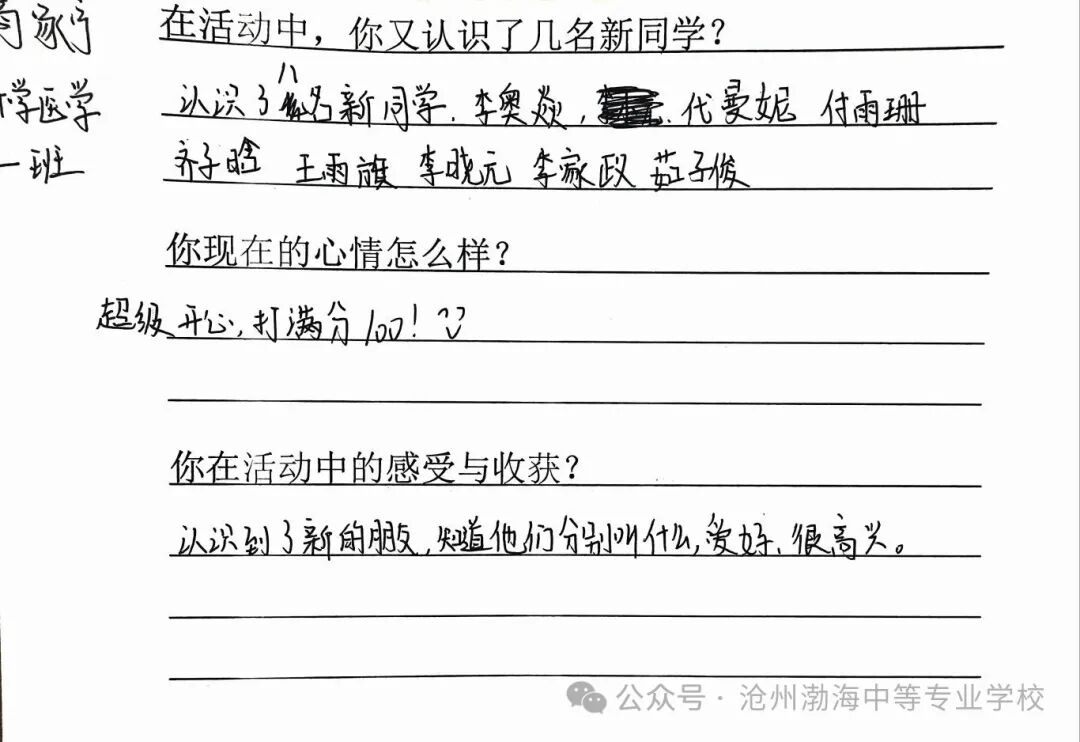 家宁
在活动中，你又认识了几名新同学？
学医学
认识了八名新同学.李奥焱，代曼妮 付雨珊
一班
齐子晗 王雨旗 李晓元 李家政 茹子俊
你现在的心情怎么样？
超级开心，打满分100！
你在活动中的感受与收获？
认识到了新的朋友，知道他们分别叫什么，爱好、很高兴。
公众号·沧州渤海中等专业学校